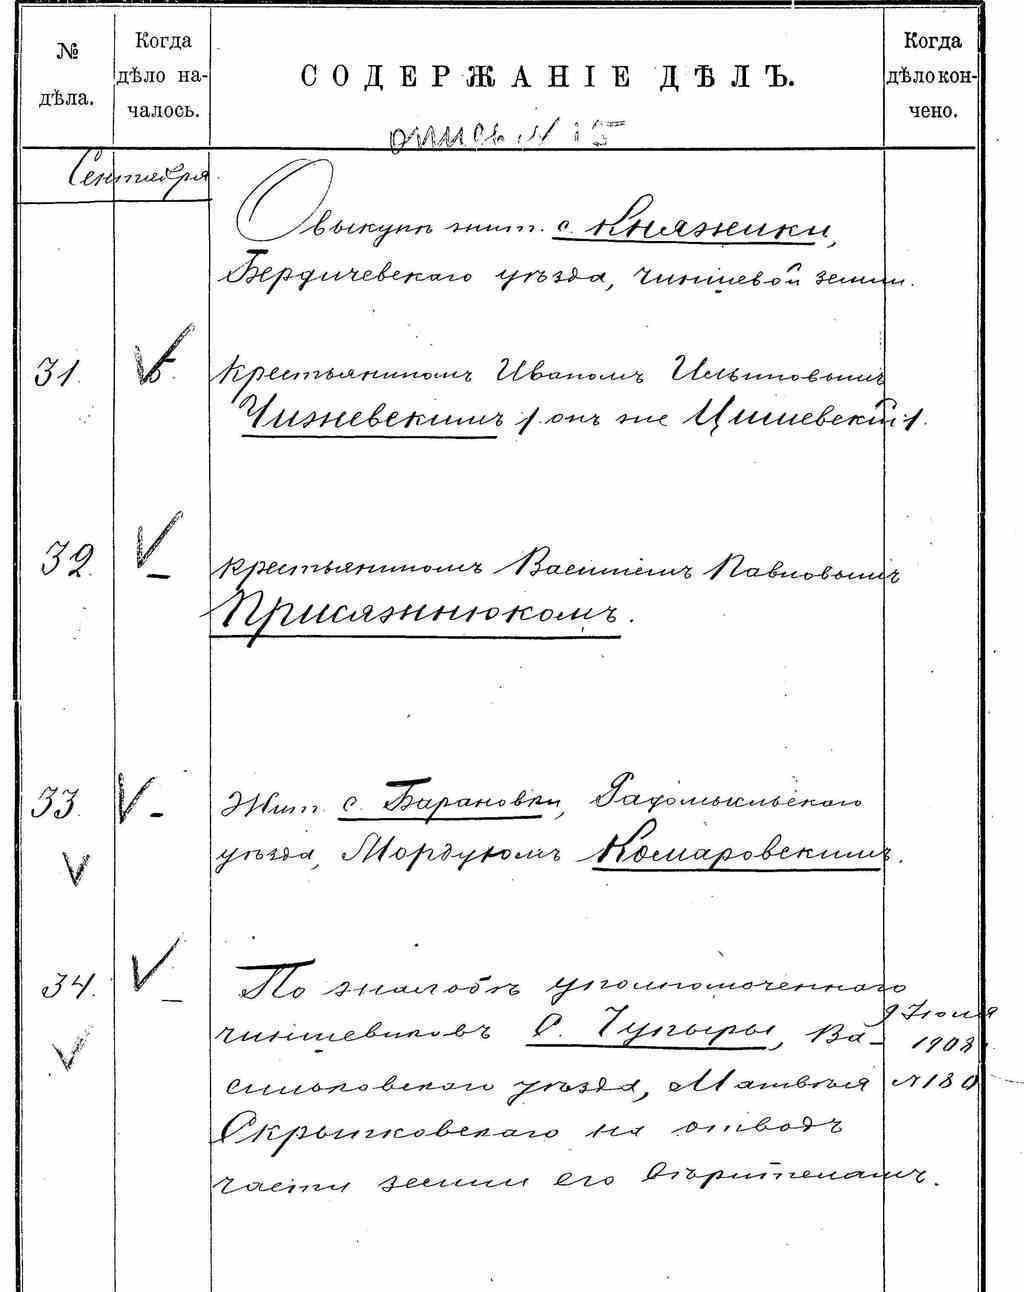 № дѣла.
Когда дѣло на-
чалось.
СОДЕРЖАНІЕ ДѢЛЪ.
Когда
дѣло кон-
чено.
опись № 15
Сентября
О выкупѣ жит. с. Княжики,
Бердичевскаго уѣзда, чиншевой земли.
31. 5. крестьяниномъ Иваномъ Ильиновымъ
Чижевскимъ /онъ же Цишевскій/.
32. – крестьяниномъ Василіемъ Павловымъ
Присяжнюкомъ.
33. – Жит. с. Барановки, Радомысльскаго
уѣзда, Мордухомъ Комаровскимъ.
34. – По жалобѣ уполномоченнаго
чиншевиковъ с. Чупыры, Ва-
сильковскаго уѣзда, Матвѣя
Скрыпковскаго на отводъ
части земли его вѣрителямъ.
9 Іюля
1908
№ 180